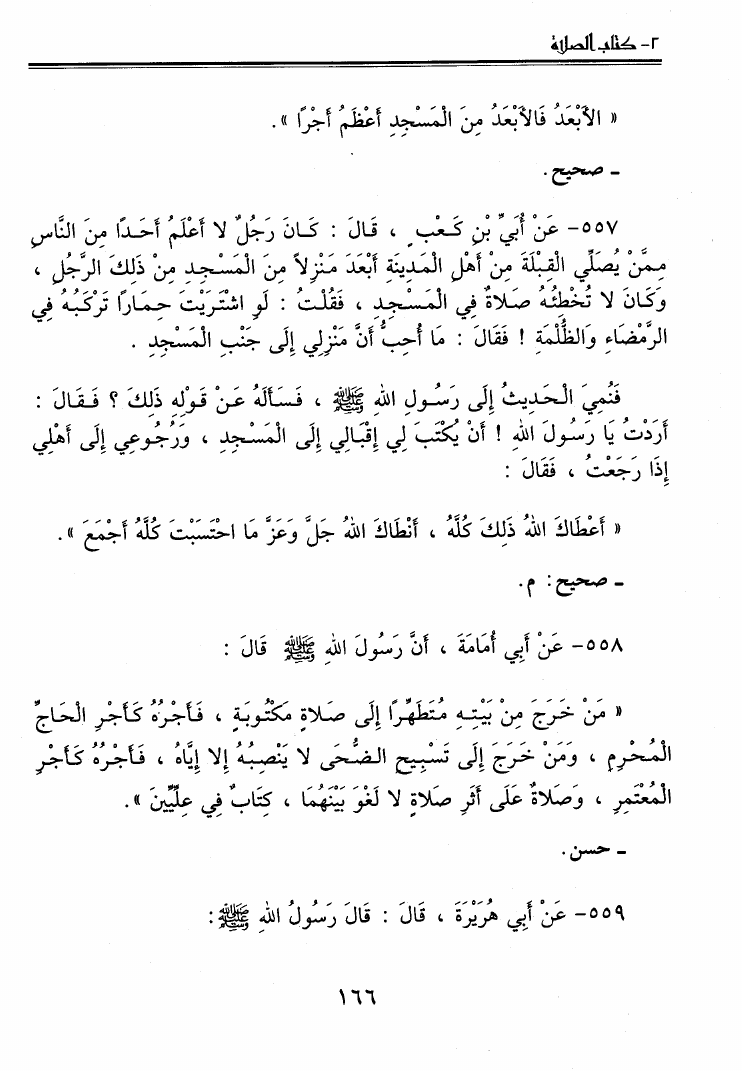 ٢- كتاب الصلاة
« الأَبْعَدُ فَالأَبْعَدُ مِنَ الْمَسْجِدِ أَعْظَمُ أَجْرًا ».
ـ صحيح.
٥٥٧- عَنْ أُبَيِّ بْنِ كَعْبٍ ، قَالَ : كَانَ رَجُلٌ لا أَعْلَمُ أَحَدًا مِنَ النَّاسِ
مِمَّنْ يُصَلِّي الْقِبْلَةَ مِنْ أَهْلِ الْمَدِينَةِ أَبْعَدَ مَنْزِلاً مِنَ الْمَسْجِدِ مِنْ ذَلِكَ الرَّجُلِ ،
وَكَانَ لا تُخْطِئُهُ صَلاةٌ فِي الْمَسْجِدِ ، فَقُلْتُ : لَوِ اشْتَرَيْتَ حِمَارًا تَرْكَبُهُ فِي
الرَّمْضَاءِ وَالظُّلْمَةِ ! فَقَالَ : مَا أُحِبُّ أَنَّ مَنْزِلِي إِلَى جَنْبِ الْمَسْجِدِ .
فَنُمِيَ الْحَدِيثُ إِلَى رَسُولِ اللهِ ﷺ ، فَسَأَلَهُ عَنْ قَوْلِهِ ذَلِكَ ؟ فَقَالَ :
أَرَدْتُ يَا رَسُولَ اللهِ ! أَنْ يُكْتَبَ لِي إِقْبَالِي إِلَى الْمَسْجِدِ ، وَرُجُوعِي إِلَى أَهْلِي
إِذَا رَجَعْتُ ، فَقَالَ :
« أَعْطَاكَ اللهُ ذَلِكَ كُلَّهُ ، أَنْطَاكَ اللهُ جَلَّ وَعَزَّ مَا احْتَسَبْتَ كُلَّهُ أَجْمَعَ ».
ـ صحيح: م.
٥٥٨- عَنْ أَبِي أُمَامَةَ ، أَنَّ رَسُولَ اللهِ ﷺ قَالَ :
« مَنْ خَرَجَ مِنْ بَيْتِهِ مُتَطَهِّرًا إِلَى صَلاةٍ مَكْتُوبَةٍ ، فَأَجْرُهُ كَأَجْرِ الْحَاجِّ
الْمُحْرِمِ ، وَمَنْ خَرَجَ إِلَى تَسْبِيحِ الضُّحَى لا يَنْصِبُهُ إِلا إِيَّاهُ ، فَأَجْرُهُ كَأَجْرِ
الْمُعْتَمِرِ ، وَصَلاةٌ عَلَى أَثَرِ صَلاةٍ لا لَغْوَ بَيْنَهُمَا ، كِتَابٌ فِي عِلِّيِّينَ ».
ـ حسن.
٥٥٩- عَنْ أَبِي هُرَيْرَةَ ، قَالَ : قَالَ رَسُولُ اللهِ ﷺ:
١٦٦